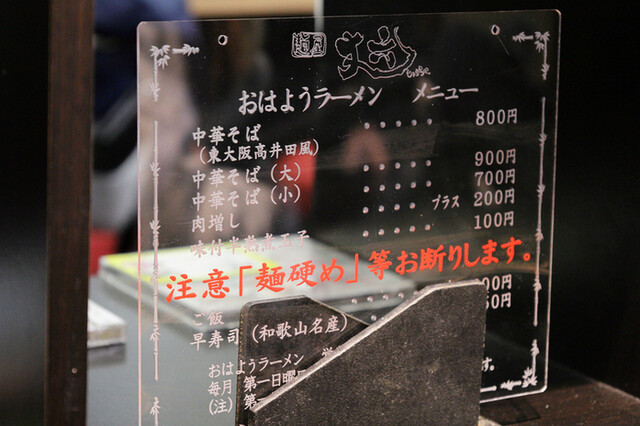 麺屋
おはようラーメン メニュー
中華そば ・・・・・ 800円
（東大阪高井田風）
中華そば（大） ・・・・・ 900円
中華そば（小） ・・・・・ 700円
肉増し ・・・・・ プラス 200円
味付半熟煮玉子 ・・・・・ 100円
注意「麺硬め」等お断りします。
ご飯 00円
早寿司（和歌山名産） 50円
おはようラーメン 営
毎月 第一日曜
（注）第 す。